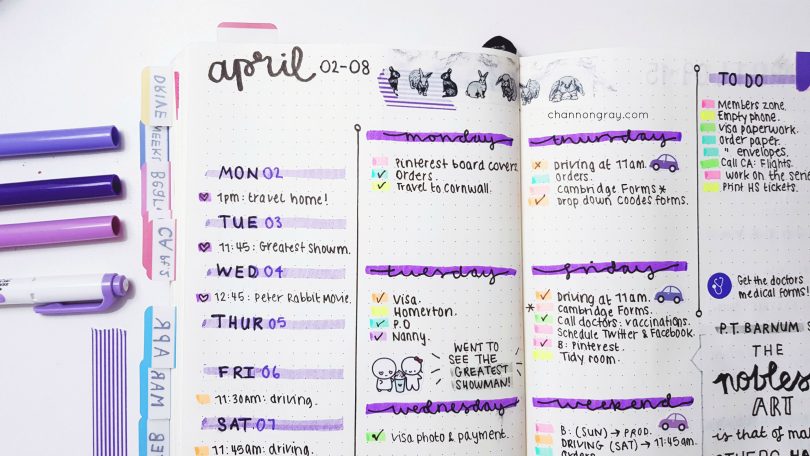 april 02-08
MON 02
1pm: travel home!
TUE 03
11:45: Greatest Showm.
WED 04
12:45: Peter Rabbit Movie.
THUR 05
FRI 06
11:30am: driving.
SAT 07
11:45am: driving.
monday
Pinterest board covers
Orders.
Travel to cornwall.
tuesday
Visa.
Homerton.
P.O
Nanny.
WENT TO
SEE THE
GREATEST
SHOWMAN!
wednesday
Visa photo & payment.
channongray.com
thursday
Driving at 11am.
Orders.
Cambridge Forms *
Drop down Coodes forms.
friday
Driving at 11am.
* Cambridge Forms.
Call doctors: vaccinations.
Schedule Twitter & Facebook.
B: Pinterest.
Tidy room.
weekend
B: (SUN) → PROD.
DRIVING (SAT) → 11:45am.
orders
TO DO
Members zone.
Empty phone.
Visa paperwork.
Order paper.
" envelopes.
Call CA: Flights.
Work on the
Print HS tickets.
Get the doctors
medical forms!
P.T. BARNUM
THE
nobles
ART
is that of